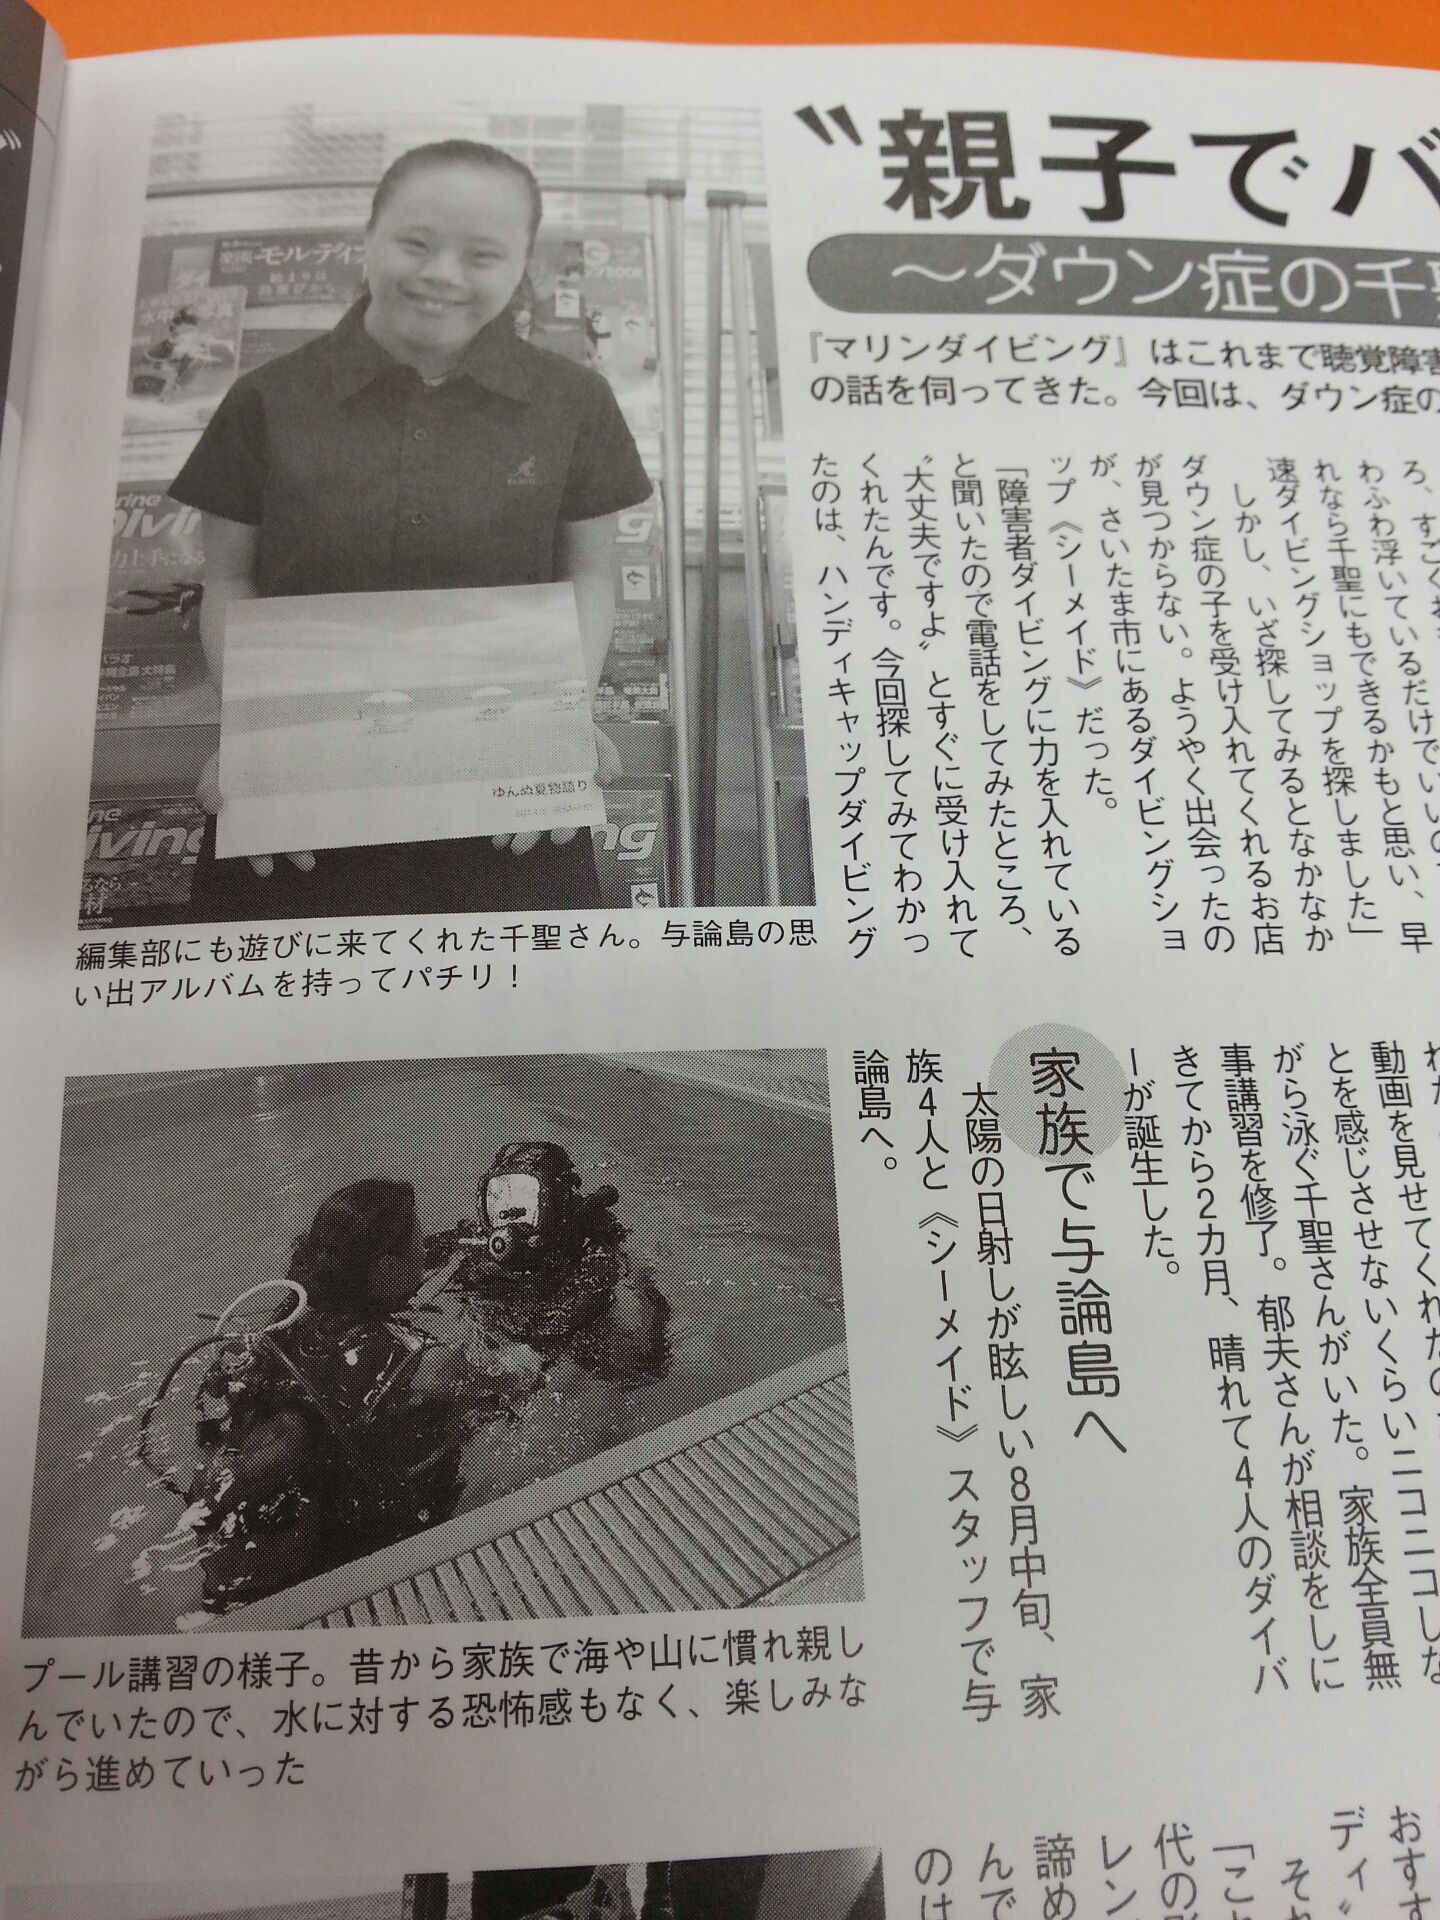 〝親子でバ
〜ダウン症の千聖
『マリンダイビング』はこれまで聴覚障害
の話を伺ってきた。今回は、ダウン症の
わふわ浮いているだけでいいの
れなら千聖にもできるかもと思い、早
速ダイビングショップを探しました」
しかし、いざ探してみるとなかなか
ダウン症の子を受け入れてくれるお店
が見つからない。ようやく出会ったの
が、さいたま市にあるダイビングショ
ップ《シーメイド》だった。
「障害者ダイビングに力を入れている
と聞いたので電話をしてみたところ、
〝大丈夫ですよ〟とすぐに受け入れて
くれたんです。今回探してみてわかっ
たのは、ハンディキャップダイビング
モルディブ
水中
BOOK
力上手になる
パラオ
ゆんぬ夏物語り
iving
材
編集部にも遊びに来てくれた千聖さん。与論島の思
い出アルバムを持ってパチリ！
動画を見せてくれたの
とを感じさせないくらいニコニコしな
がら泳ぐ千聖さんがいた。家族全員無
事講習を修了。郁夫さんが相談をしに
きてから2カ月、晴れて4人のダイバ
ーが誕生した。
家族で与論島へ
太陽の日射しが眩しい8月中旬、家
族4人と《シーメイド》スタッフで与
論島へ。
プール講習の様子。昔から家族で海や山に慣れ親し
んでいたので、水に対する恐怖感もなく、楽しみな
がら進めていった
おすす
ディ〟
それ
「こ
代の
レン
諦め
んで
のは